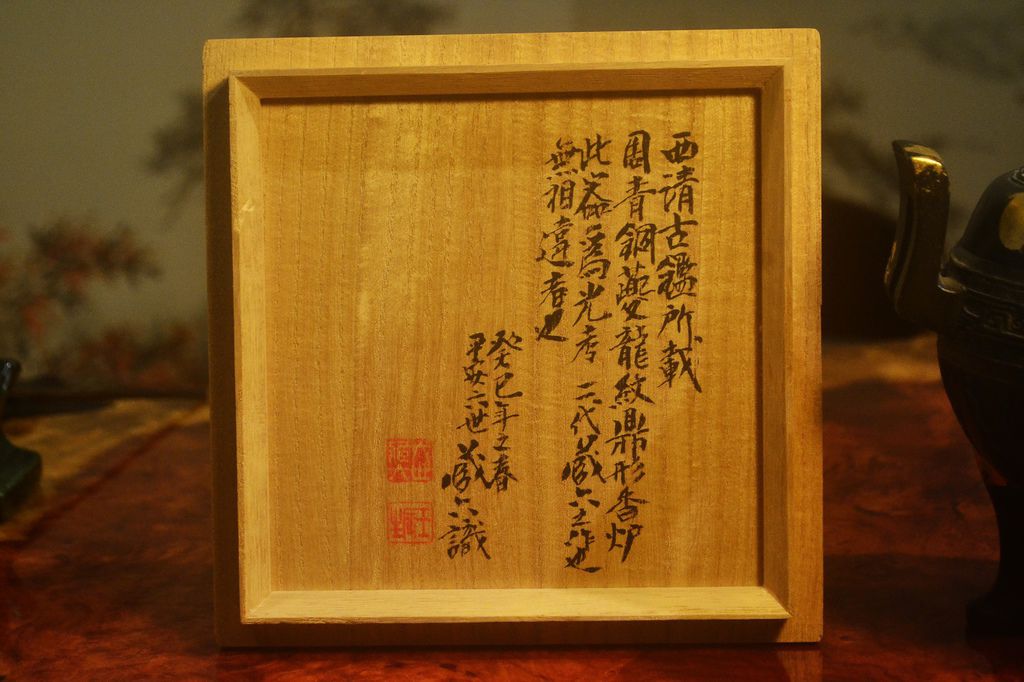 西清古鑑所載
周青銅夔龍紋鼎形香炉
此器為先考二代蔵六之作也
無相違者也
癸巳年之春
六世蔵六識